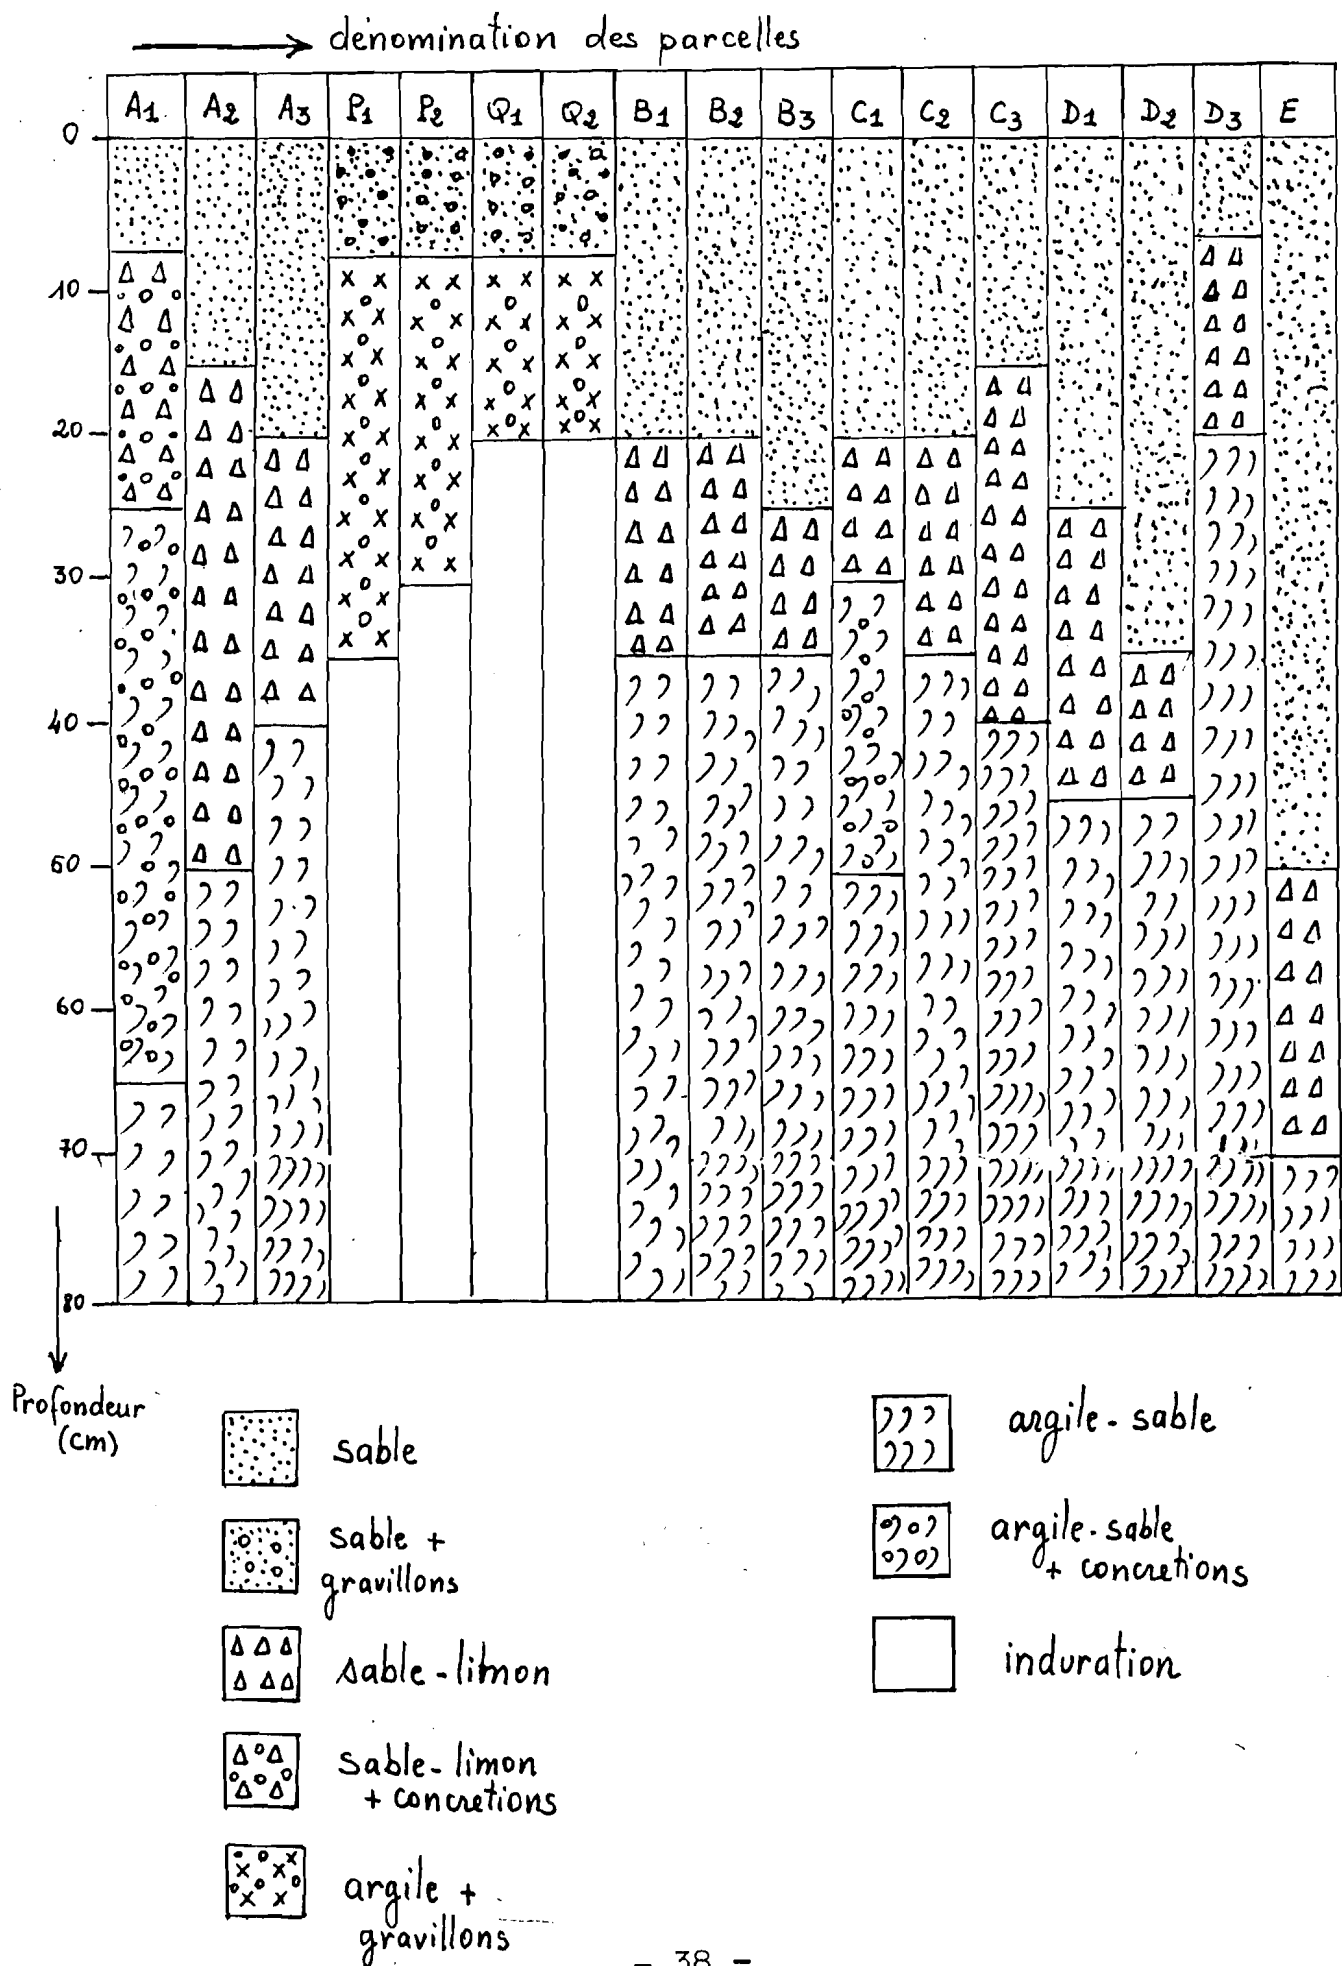 dénomination des parcelles
A1 A2 A3 P1 P2 Q1 Q2 B1 B2 B3 C1 C2 C3 D1 D2 D3 E
0
10
20
30
40
60
60
70
80
Profondeur
(cm)
sable
sable +
gravillons
sable-limon
sable-limon
+ concretions
argile +
gravillons
argile-sable
argile-sable
+ concretions
induration
- 38 -